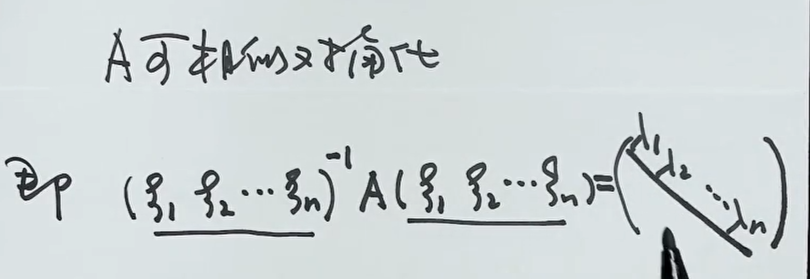 A可相似对角化
即 (ξ₁ ξ₂ ⋯ ξₙ)⁻¹ A (ξ₁ ξ₂ ⋯ ξₙ) = (λ₁ λ₂ ⋱ λₙ)